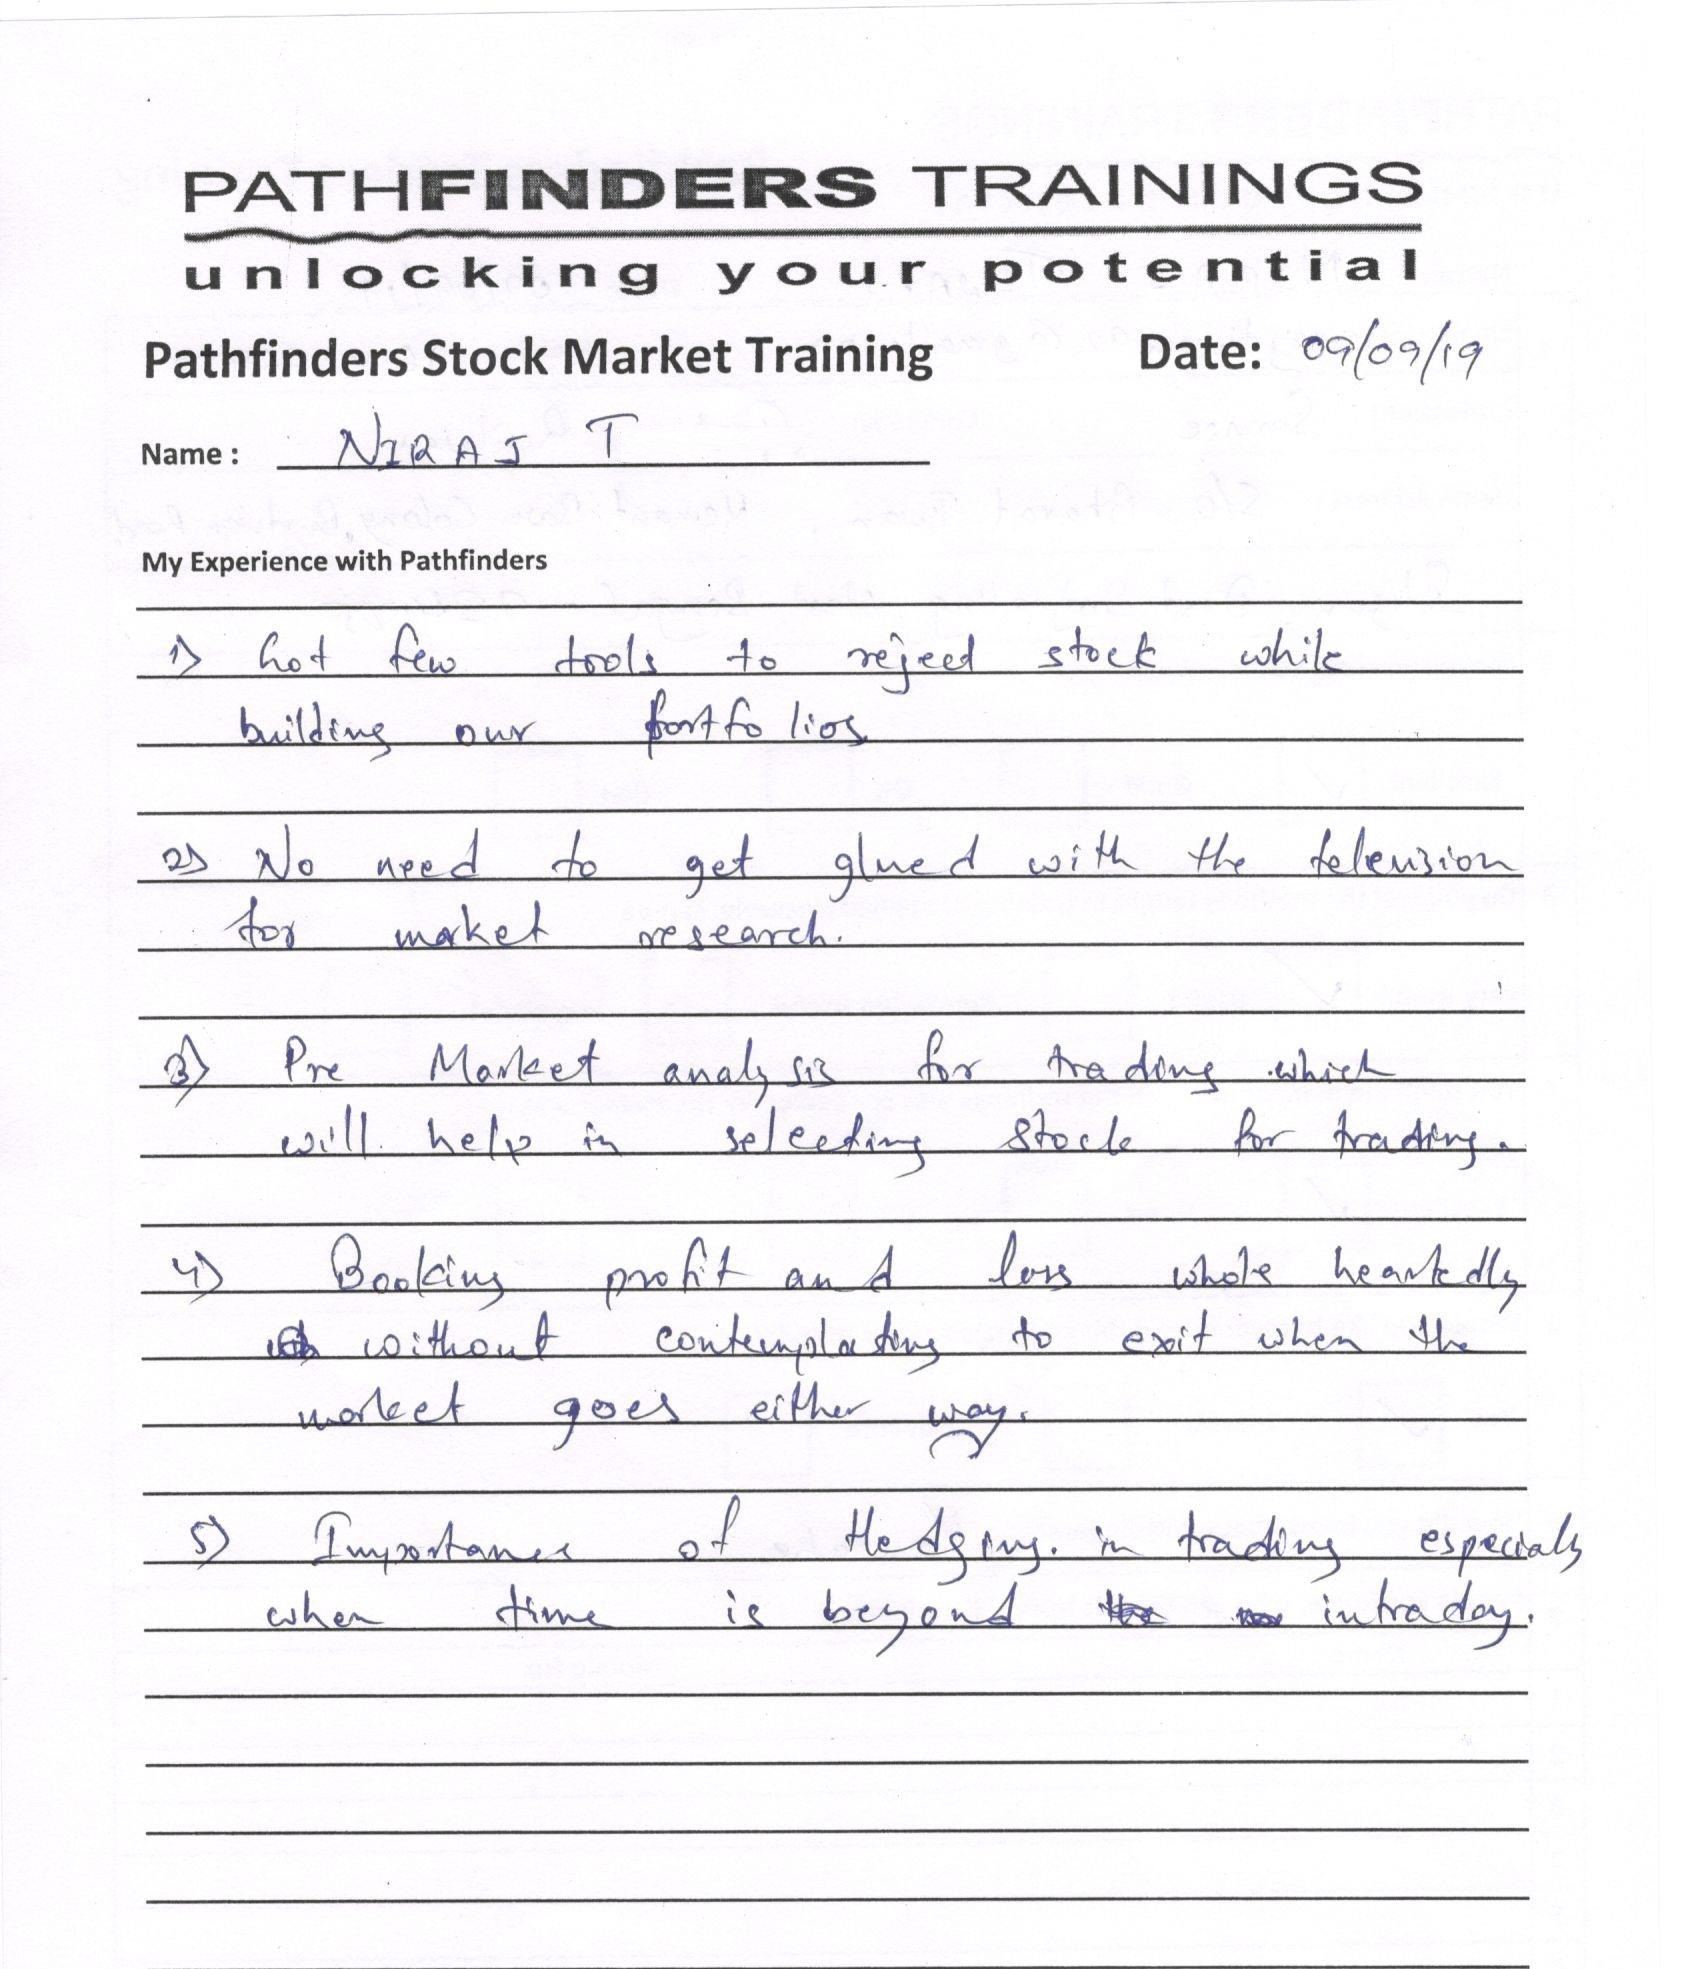 PATHFINDERS TRAININGS
unlocking your potential
Pathfinders Stock Market Training Date: 09/09/19
Name : NIRAJ T
My Experience with Pathfinders
1) Got few tools to reject stock while
building our portfolios
2) No need to get glued with the television
for market research.
3) Pre Market analysis for trading which
will help in selecting stock for trading.
4) Booking profit and loss whole heartedly
without contemplating to exit when the
market goes either way.
5) Importance of Hedging. in trading especially
when time is beyond intraday.